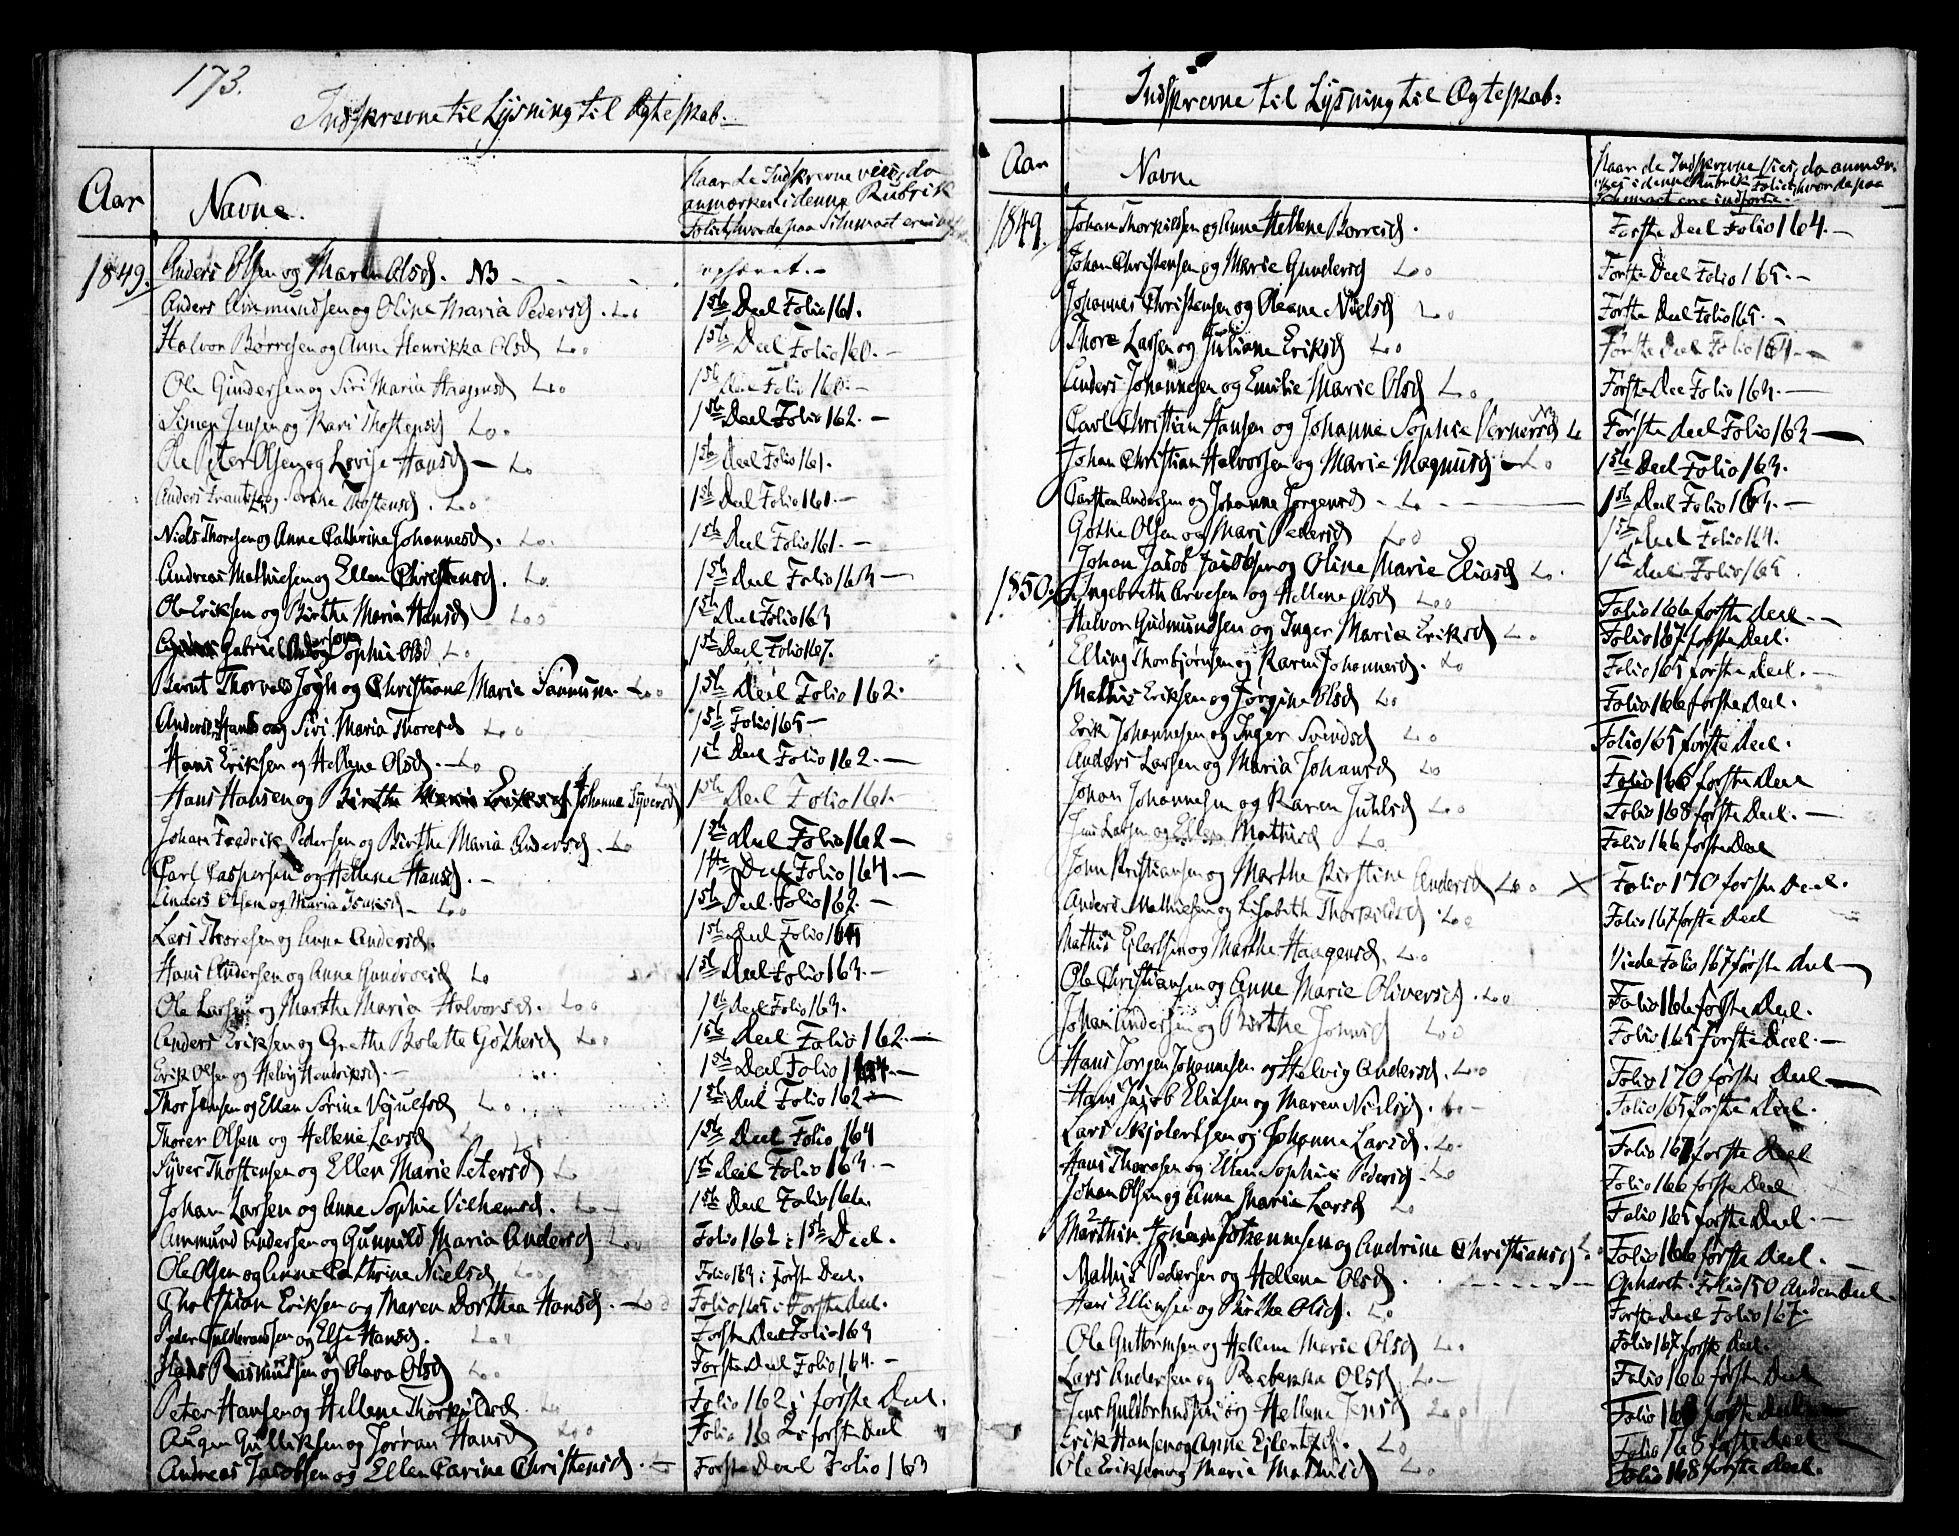 173.
Indskrevne til Lysning til Ægteskab.
Aar
Navne.
Naar de Indskrevne vies, da
anmærkes i denne Rubrik
Folio, hvor de paa
1849.
Anders Olsen og Maren Olsd. NB
ophævet.
Anders Ammundsen og Oline Maria Pedersd. Lo
1ste Deel Folio 161.
Halvor Børresen og Anne Henrikka Olsd Lo
1ste Deel Folio 160.
Ole Gundersen og Siri Maria Haagensd Lo
1ste Deel Folio 160.
Simen Jensen og Kari Thostensd Lo
1ste Deel Folio 162.
Ole Peter Olsen og Lovise Hansd Lo
1ste Deel Folio 161.
Anders Frantz og Thostensd. Lo
1ste Deel Folio 161.
Niels Thoresen og Anne Cathrine Johannesd. Lo
1ste Deel Folio 161.
Andreas Mathiesen og Ellen Christensd. Lo
1ste Deel Folio 163
Ole Eriksen og Birthe Maria Hansd Lo
1ste Deel Folio 163
Gabriel Anderson og Sophie Olsd Lo
1ste Deel Folio 167.
Bernt Thorvald Jøgh og Christiane Marie Sannum. Lo
1ste Deel Folio 162.
Anders Hans og Siri Maria Thoresd Lo
1ste Folio 165
Hans Eriksen og Hellene Olsd. Lo
1ste Deel Folio 162.
Hans Hansen og Birthe Maria Eriksd Johanna Syversd Lo
1ste Deel Folio 161.
Johan Fredrik Pedersen og Birthe Maria Andersd. Lo
1ste Deel Folio 162
Carl Caspersen og Hellene Hansd.
1ste Deel Folio 164.
Anders Olsen og Maria Lo
1ste Deel Folio 162.
Lars Thoresen og Anne Andersd.
1ste Deel Folio 164
Hans Andersen og Anne Gundroesd Lo
1ste Deel Folio 163.
Ole Larsen og Marthe Maria Halvorsd. Lo
1ste Deel Folio 163.
Anders Eriksen og Grethe Bolette Gøthesd Lo
1ste Deel Folio 162.
Erik Olsen og Helvig Hendriksd.
1ste Deel Folio 164.
Thor Jensen og Ellen Sorine Lo
1ste Deel Folio 162
Thorer Olsen og Hellene Larsd L
1ste Deel Folio 164
Syver Thostensen og Ellen Marie Petersd Lo
1ste Deel Folio 163.
Johan Larsen og Anne Sophie Vilhemsd. Lo
1ste Deel Folio 166.
Ammund Andersen og Gunnild Maria Andersd Lo
Folio 162 i 1ste Deel.
Ole Olsen og Anne Cathrine Nielsd Lo
Folio 163 i første Deel.
Christian Eriksen og Maren Dorthea Hansd. Lo
Folio 165 i Første Deel.
Peder Guldbrandsen og Else Hansd. Lo
Første Deel Folio 163
Hans Rasmussen og Olava Olsd Lo
Første Deel Folio 164.
Peter Hansen og Hellene Thorkildsd Lo
Folio 162 i første Deel.
Augen Gulliksen og Jørran Hansd Lo
Folio 162 i første Deel
Andreas Jacobsen og Ellen Carine Christensd.
Første Deel Folio 163
Indskrevne til Lysning til Ægteskab.
Aar
Navne
Naar de Indskrevne vies, da anmær-
kes i denne Rubrik Folio, hvor de paa
ere indførte.
1849.
Johan Thorkildsen og Anne Hellene Børresd.
Første Deel Folio 164.
Johan Christensen og Marie Gundersd Lo
Første Deel Folio 165.
Johannes Christensen og Oleane Nielsd Lo
Første Deel Folio 165.
Thore Larsen og Juliane Eriksd Lo
Første Deel Folio 164.
Anders Johannesen og Emilie Marie Olsd Lo
Første Deel Folio 163.
Carl Christian Hansen og Johanne Sophie Vernersd NB Lo
Første Deel Folio 163
Johan Christian Halvorsen og Marie Magnusd Lo
1ste Deel Folio 163.
Carsten Andersen og Johanne Jørgensd Lo
1ste Deel Folio 164.
Gothe Olsen og Mari Pedersd Lo
1ste Deel Folio 164.
Johan Jacob Jacobsen og Oline Marie Eliasd Lo
1ste Deel Folio 165
1850.
Ingebreth Arvesen og Hellene Olsd Lo
Folio 166 første Deel.
Halvor Gudmundsen og Inger Maria Eriksd Lo
Folio 167 første Deel.
Elling Thorbjørnsen og Karen Johannesd. Lo
Folio 165 første Deel.
Mathis Eriksen og Jørgine Olsd Lo
Folio 166 første Deel.
Erik Johannesen og Inger Svendsd Lo
Folio 165 første Deel.
Anders Larsen og Maria Johansd Lo
Folio 166 første Deel
Johan Johannesen og Karen Juhlsd Lo
Folio 168 første Deel.
Jens Larsen og Ellen Mathisd Lo
Folio 166 første Deel
John Kristiansen og Marthe Kirstine Andersd Lo X
Folio 170 første Deel.
Anders Mathiesen og Lisabeth Thorkildsd. Lo
Folio 167 første Deel
Mathis Eilertsen og Marthe Haagensd. Lo
Viede Folio 167 første Deel
Ole Christiansen og Anne Marie Oliversd. Lo
Folio 166 første Deel.
Johan Andersen og Birthe Lo
Folio 165 første Deel.
Hans Jørgen Johannesen og Helvig Andersd. Lo
Folio 170 første Deel
Hans Jacob Eliasen og Maren Nielsd.
Folio 165 første Deel.
Lars Skjolertsen og Johanne Larsd. Lo
Folio 167 første Deel
Hans Thoresen og Ellen Sophie Pedersd. Lo
Folio 166 første Deel
Johan Olsen og Anne Maria Larsd Lo
Folio 165 første Deel.
Marthin Johannesen og Andrine Christiansd Lo
Folio 166 første Deel.
Mathis Pedersen og Hellene Olsd.
Ophævet. Folio 150 Anden Deel.
Hans Ellinsen og Olsd. Lo
Første Deel Folio 167.
Ole Guttormsen og Hellene Marie Olsd Lo
Folio 167 første Deel.
Lars Andersen og Rebekka Olsd Lo
Folio 166 første Deel
Jens Guldbrandsen og Hellene Jensd Lo
Folio første Deel
Erik Hansen og Anne Eilertsd. Lo
Folio 168 første Deel
Ole Eriksen og Marie Mathisd Lo
Folio 168 første Deel.